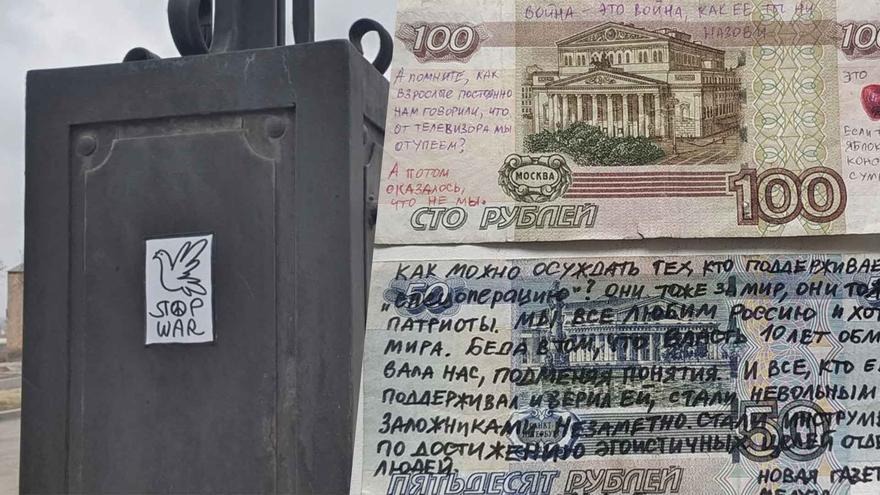 STOP
WAR
100
100
ВОЙНА - ЭТО ВОЙНА, КАК ЕЕ ТЫ НИ
НАЗОВИ
А ПОМНИТЕ, КАК
ВЗРОСЛЫЕ ПОСТОЯННО
НАМ ГОВОРИЛИ, ЧТО
ОТ ТЕЛЕВИЗОРА МЫ
ОТУПЕЕМ?
А ПОТОМ
ОКАЗАЛОСЬ,
ЧТО НЕ МЫ.
ЭТО
ЕСЛИ
ЯБЛОК
КОНО
СУМ
МОСКВА
100
СТО РУБЛЕЙ
КАК МОЖНО ОСУЖДАТЬ ТЕХ, КТО ПОДДЕРЖИВАЕ
"СПЕЦОПЕРАЦИЮ"? ОНИ ТОЖЕ ЗА МИР, ОНИ ТОЖ
ПАТРИОТЫ. МЫ ВСЕ ЛЮБИМ РОССИЮ И ХОТ
МИРА. БЕДА В ТОМ, ЧТО ВЛАСТЬ 10 ЛЕТ ОБМ
ВАЛА НАС, ПОДМЕНЯЯ ПОНЯТИЯ. И ВСЕ, КТО Е
ПОДДЕРЖИВАЛ И ВЕРИЛ ЕЙ, СТАЛИ НЕВОЛЬНЫМ
ЗАЛОЖНИКАМИ. НЕЗАМЕТНО СТАЛИ ИНСТРУМЕ
ПО ДОСТИЖЕНИЮ ЭГОИСТИЧНЫХ ЦЕЛЕЙ ОТДЕ
ЛЮДЕЙ.
50
50
ПЯТЬДЕСЯТ РУБЛЕЙ
НОВАЯ ГАЗЕТ